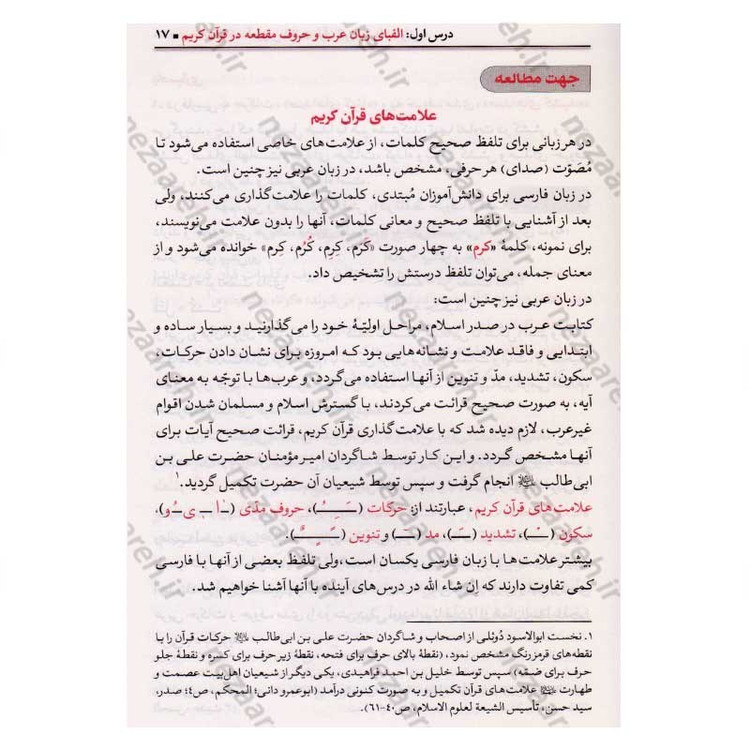 درس اول: الفبای زبان عرب و حروف مقطعه در قرآن کریم ■ ۱۷
جهت مطالعه
علامت‌های قرآن کریم
در هر زبانی برای تلفظ صحیح کلمات، از علامت‌های خاصی استفاده می‌شود تا
مُصَوّت (صدای) هر حرفی، مشخص باشد، در زبان عربی نیز چنین است.
در زبان فارسی برای دانش‌آموزان مُبتدی، کلمات را علامت‌گذاری می‌کنند، ولی
بعد از آشنایی با تلفظ صحیح و معانی کلمات، آنها را بدون علامت می‌نویسند،
برای نمونه، کلمهٔ «کرم» به چهار صورت «کَرَم، کِرِم، کُرُم، کِرم» خوانده می‌شود و از
معنای جمله، می‌توان تلفظ درستش را تشخیص داد.
در زبان عربی نیز چنین است:
کتابت عرب در صدر اسلام، مراحل اولیّهٔ خود را می‌گذارنید و بسیار ساده و
ابتدایی و فاقد علامت و نشانه‌هایی بود که امروزه برای نشان دادن حرکات،
سکون، تشدید، مدّ و تنوین از آنها استفاده می‌گردد، و عرب‌ها با توجّه به معنای
آیه، به صورت صحیح قرائت می‌کردند، با گسترش اسلام و مسلمان شدن اقوام
غیرعرب، لازم دیده شد که با علامت‌گذاری قرآن کریم، قرائت صحیح آیات برای
آنها مشخص گردد. و این کار توسط شاگردان امیر مؤمنان حضرت علی بن
ابی‌طالب انجام گرفت و سپس توسط شیعیان آن حضرت تکمیل گردید.۱
علامت‌های قرآن کریم، عبارتند از: حرکات (ـَـِـُـ)، حروف مدّی (ـَا ـِی ـُو)،
سکون (ـْـ)، تشدید (ـّـ)، مد (ـٓـ) و تنوین (ـًـٍـٌ).
بیشتر علامت‌ها با زبان فارسی یکسان است، ولی تلفظ بعضی از آنها با فارسی
کمی تفاوت دارند که اِن شاء الله در درس‌های آینده با آنها آشنا خواهیم شد.
۱. نخست ابوالاسود دُوئلی از اصحاب و شاگردان حضرت علی بن ابی‌طالب حرکات قرآن را با
نقطه‌های قرمزرنگ مشخص نمود، (نقطهٔ بالای حرف برای فتحه، نقطهٔ زیر حرف برای کسره و نقطهٔ جلو
حرف برای ضمّه) سپس توسط خلیل بن احمد فراهیدی، یکی دیگر از شیعیان اهل‌بیت عصمت و
طهارت علامت‌های قرآن تکمیل و به صورت کنونی درآمد (ابوعمرو دانی؛ المحکم، ص۴؛ صدر،
سید حسن، تأسیس الشیعة لعلوم الاسلام، ص۴۰-۶۱).
nezaareh.ir